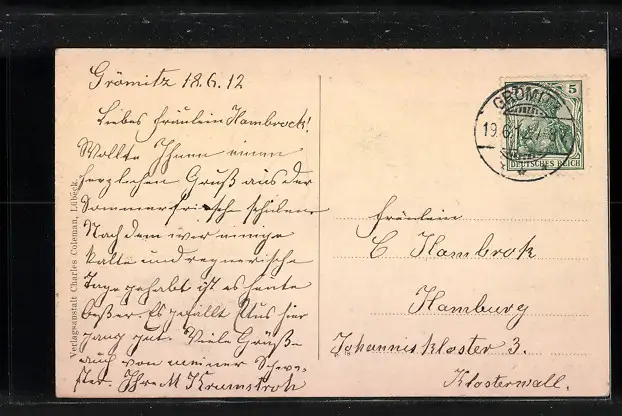 Grömitz 18.6.12
Liebes Fräulein Hambrock!
Wollte Ihnen einen
herzlichen Gruß aus der
Sommerfrische schicken
Nach dem wir einige
kalte und regnerische
Tage gehabt ist es heute
beßer. Es gefällt uns hier
ganz gut. Viele Grüße
auch von meiner Schwe-
ster. Ihre M Krumstroh
Verlagsanstalt Charles Coleman, Lübeck.
GRÖMITZ
19.6.
5
DEUTSCHES REICH
Fräulein
C. Hambrok
Hamburg
Johanniskloster 3.
Klosterwall.